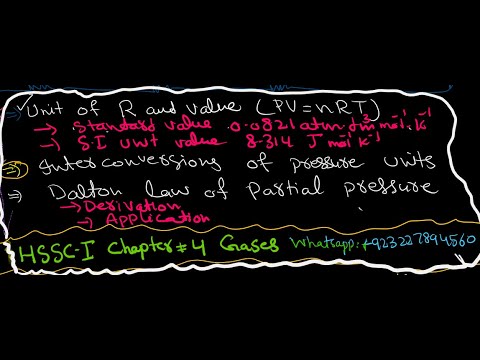 ⇒ ✓ Unit of R and value (PV=nRT)
→ Standard value 0.0821 atm dm³ mol⁻¹ K⁻¹
→ S.I unit value 8.314 J mol⁻¹ K⁻¹
⇒ Interconversions of pressure units
⇒ Dalton law of Partial pressure
→ Derivation
→ Application
HSSC-I Chapter#4 Gases Whatsapp:+923227894560